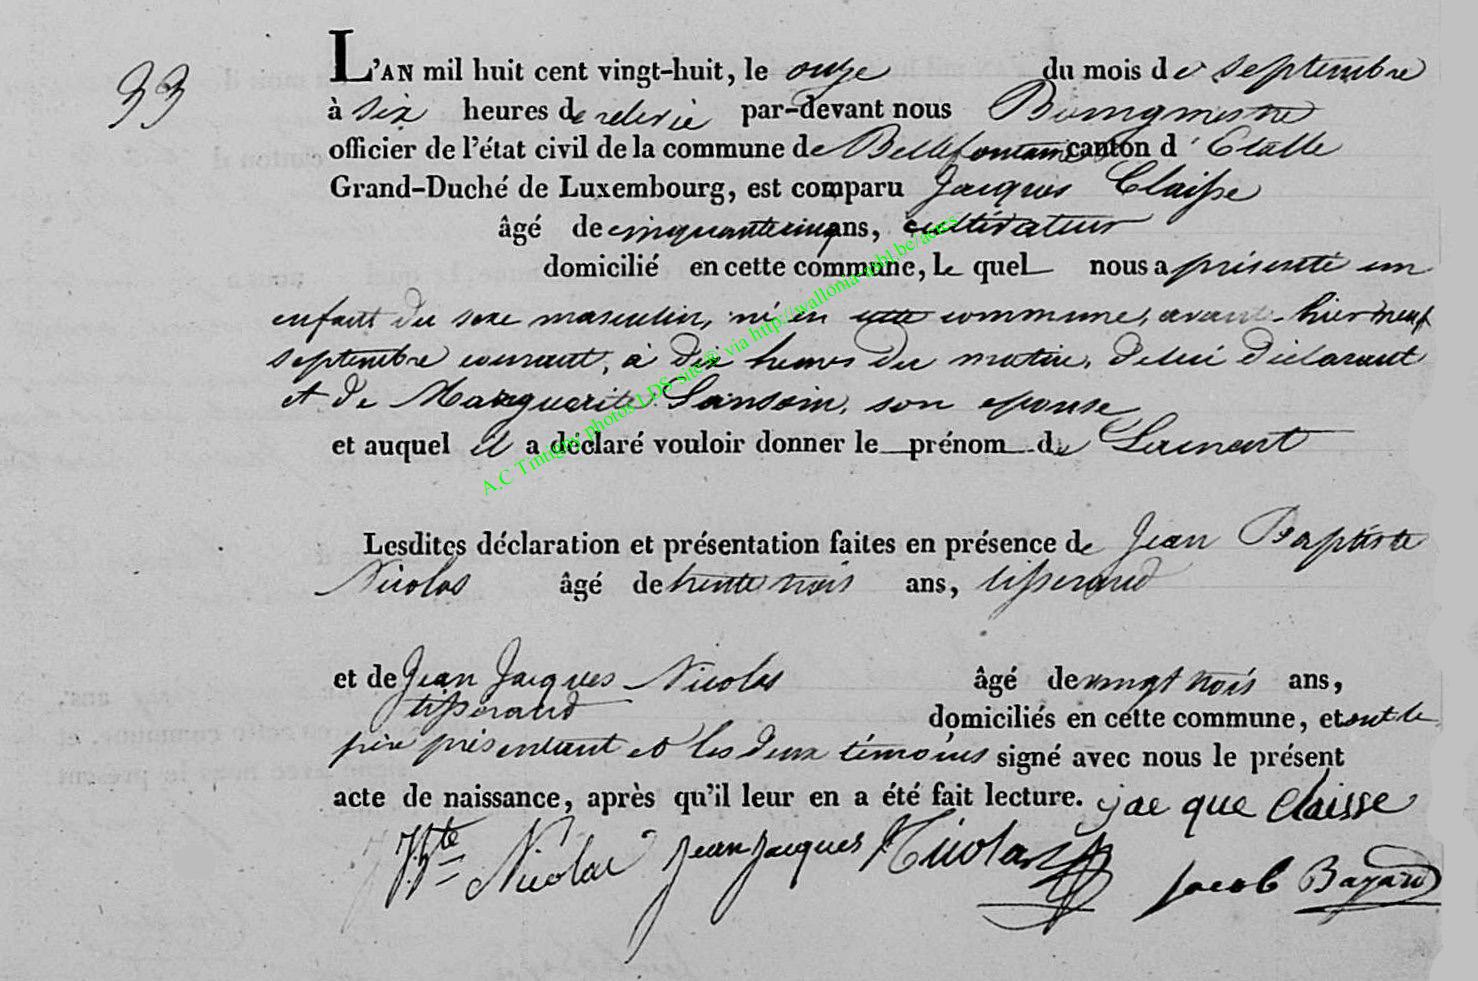 33
L'AN mil huit cent vingt-huit, le onze du mois de septembre
à six heures de relevée par-devant nous Bourgmestre
officier de l'état civil de la commune de Bellefontaine canton d'Etalle
Grand-Duché de Luxembourg, est comparu Jacques Claisse
âgé de cinquante cinq ans, cultivateur
domicilié en cette commune, le quel nous a présenté un
enfant du sexe masculin, né en cette commune, avant-hier neuf
septembre courant, à dix heures du matin, de lui déclarant
et de Marguerite Sansoin, son epouse
et auquel il a déclaré vouloir donner le prénom de Laurent
Lesdites déclaration et présentation faites en présence de Jean Baptiste
Nicolas âgé de trente trois ans, tisserand
et de Jean Jacques Nicolas âgé de vingt trois ans,
tisserand domiciliés en cette commune, et ont le
père présentant et les deux témoins signé avec nous le présent
acte de naissance, après qu'il leur en a été fait lecture. jacque Claisse
JBte Nicolas jean jacques Nicolas Jacob Bayard
A.C Tintigny photos LDS site © via http://wallonia-asbl.be/actes